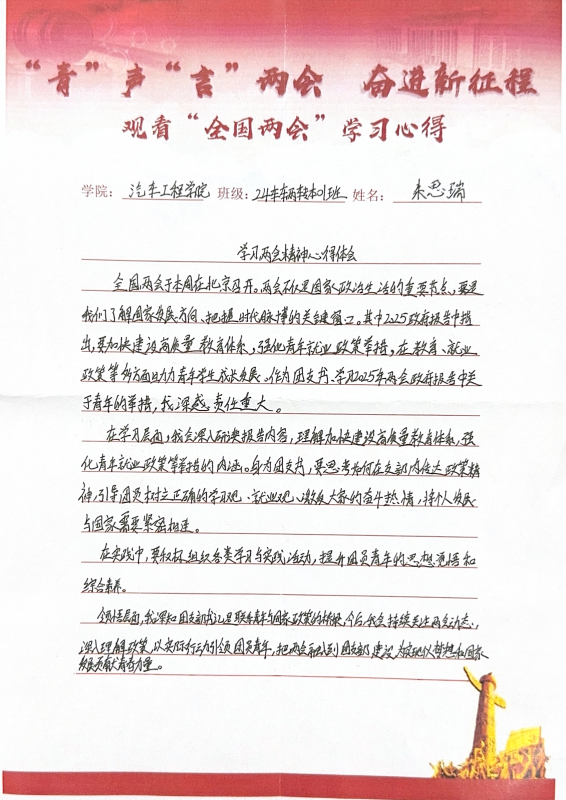 “青”声“言”两会 奋进新征程
观看“全国两会”学习心得
学院：汽车工程学院 班级：24车辆转本01班 姓名：朱思瑞
学习两会精神心得体会
全国两会于本周在北京召开。两会不仅是国家政治生活的重要节点，更是
我们了解国家发展方向、把握时代脉搏的关键窗口。其中2025政府报告中提
出，要加快建设高质量教育体系，强化青年就业政策举措，在教育、就业
政策等多方面助力青年学生成长发展。作为团支书，学习2025年两会政府报告中关
于青年的举措，我深感责任重大。
在学习层面，我会深入研读报告内容，理解加快建设高质量教育体系，强
化青年就业政策等举措的内涵。身为团支书，要思考如何在支部内传达政策精
神，引导团员树立正确的学习观、就业观、激发大家的奋斗热情，将个人发展
与国家需要紧密相连。
在实践中，要积极组织各类学习与实践活动，提升团员青年的思想觉悟和
综合素养。
领悟层面，我深知团支部书记是联系青年与国家政策的桥梁，今后，我会持续关注两会动态，
深入理解政策，以实际行动引领团员青年，把两会融入到团支部建设，为实现
梦想和国家
发展贡献青春力量。